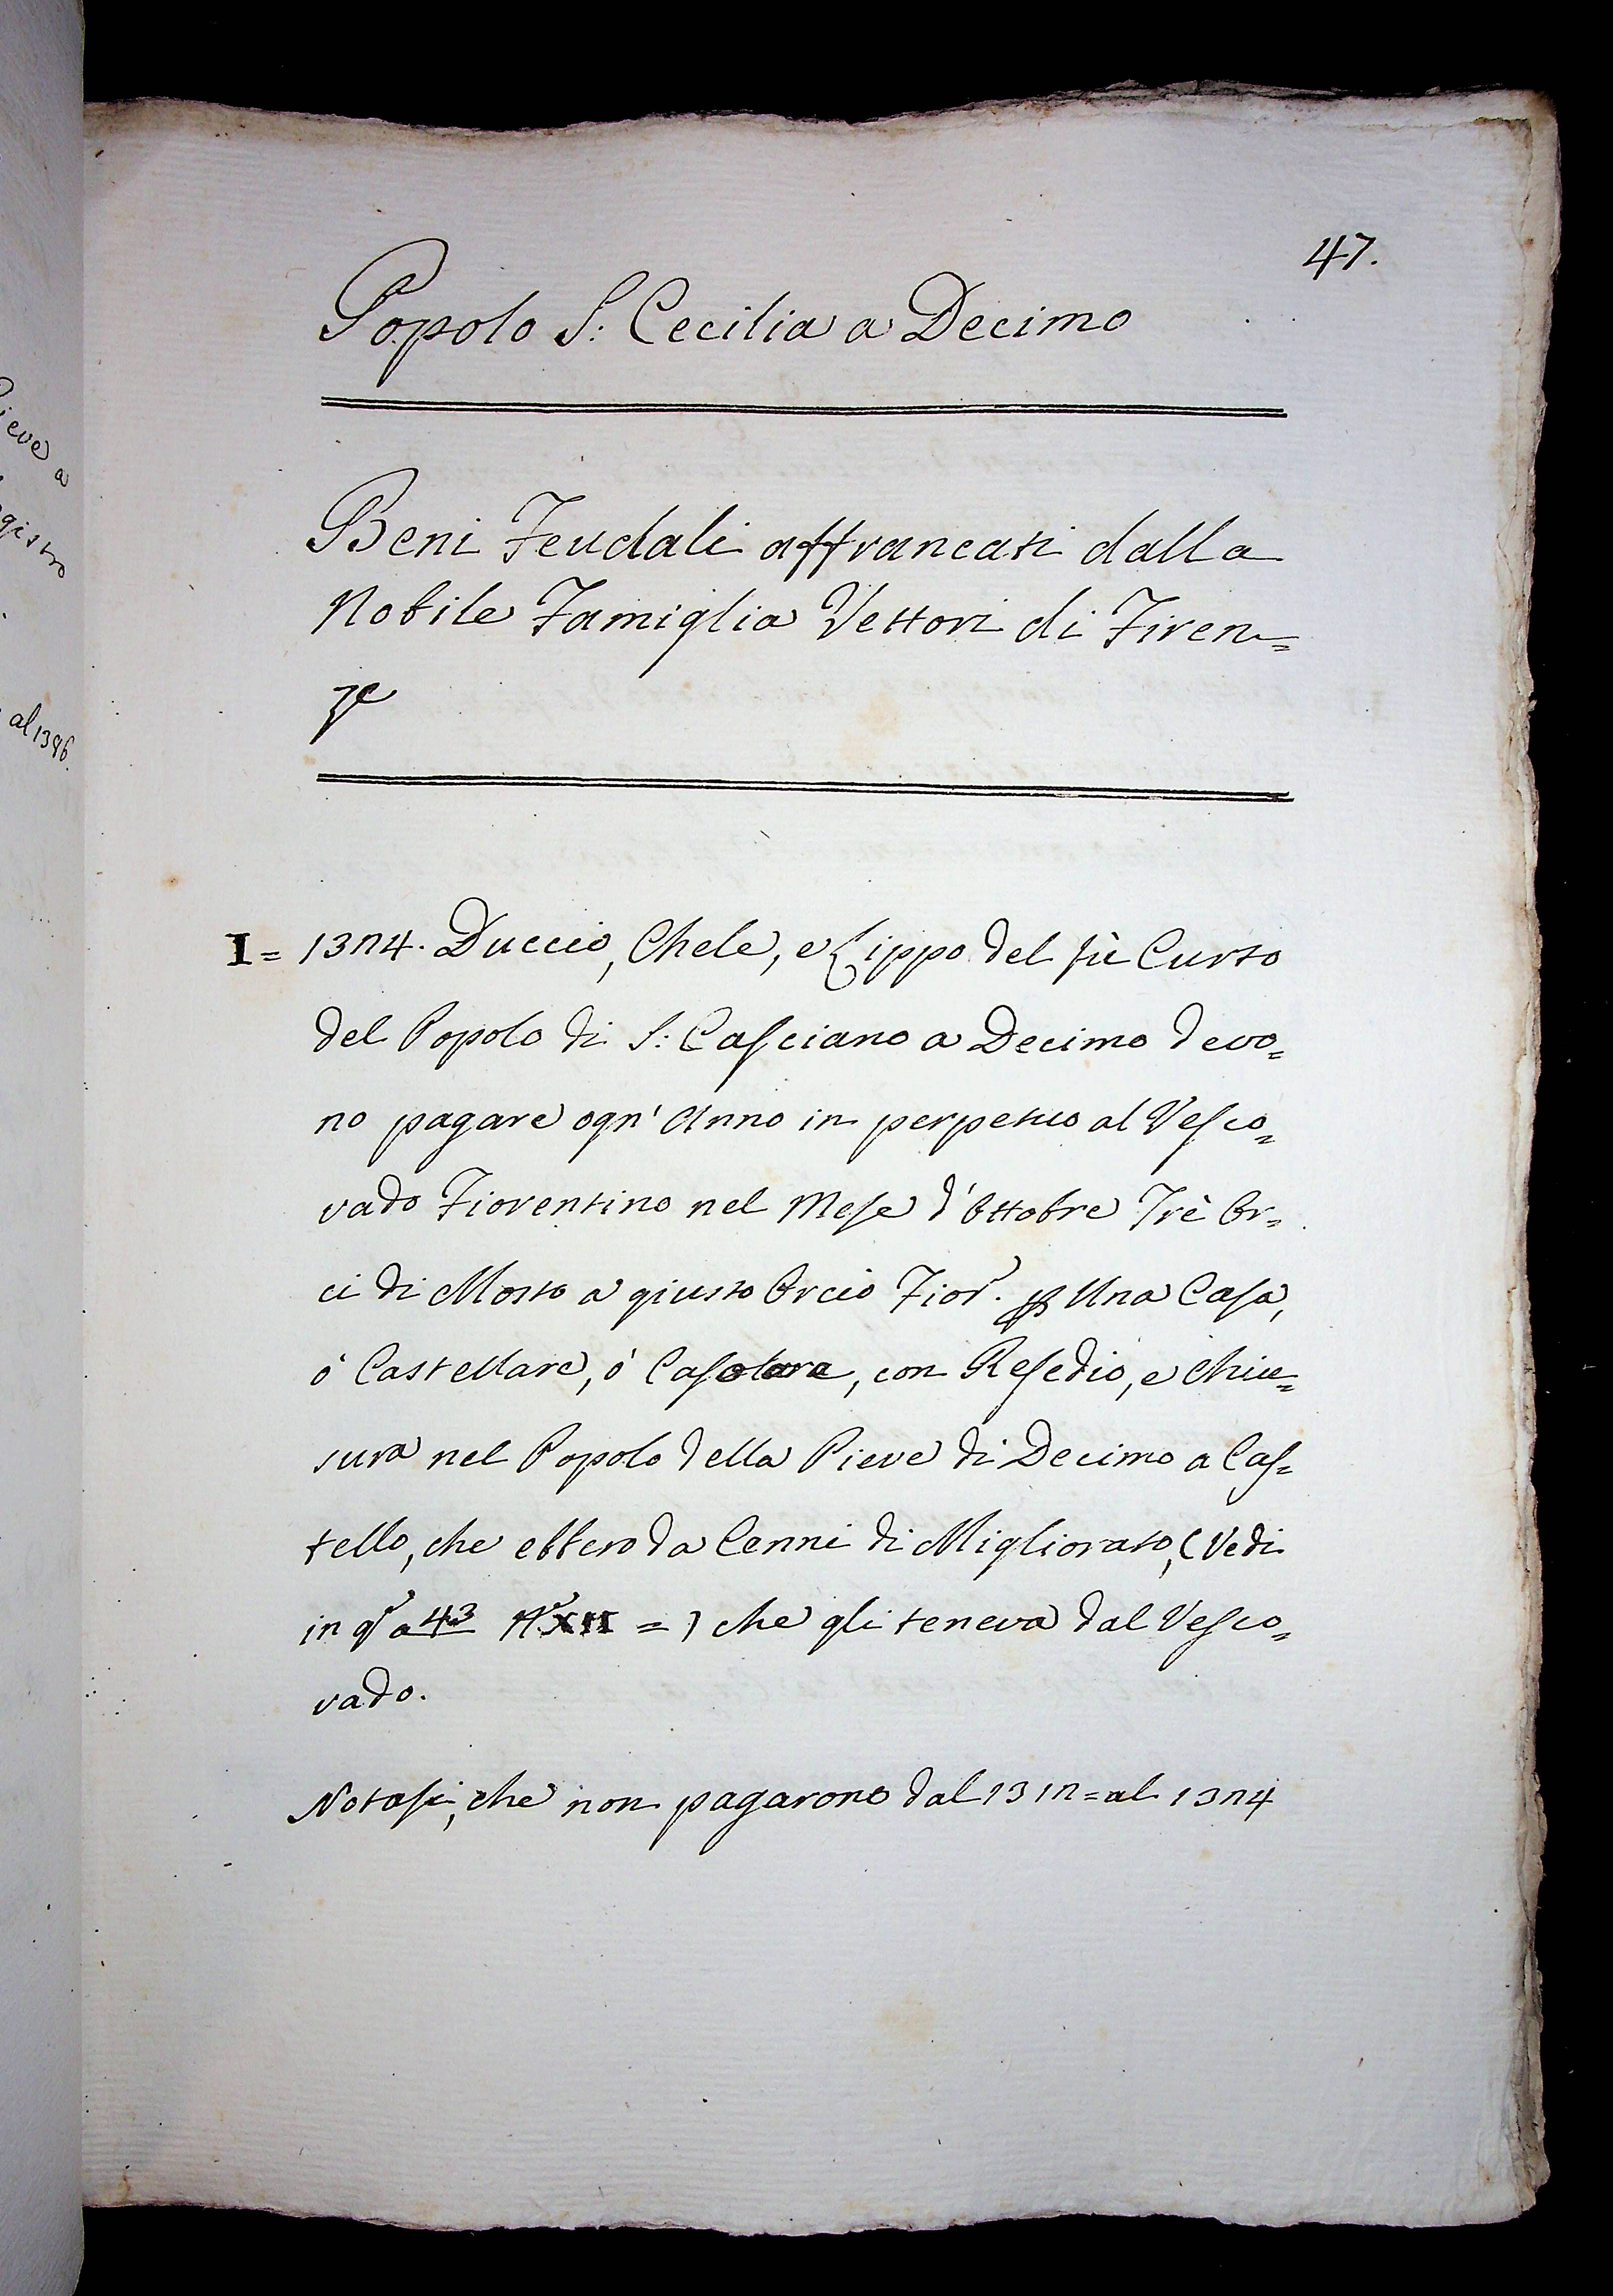 47.
Popolo S: Cecilia a Decimo
Beni Feudali affrancati dalla
Nobile Famiglia Vettori di Firen=
ze
I= 1324. Duccio, Chele, e Lippo del fù Curto
del Popolo di S: Casciano a Decimo devo=
no pagare ogn' Anno in perpetuo al Vesco=
vado Fiorentino nel Mese d'Ottobre Trè Or=
ci di Mosto a giusto Orcio Fior. p Una Casa,
ó Castellare, ó Casolare, con Resedio, e Chiu=
sura nel Popolo della Pieve di Decimo a Cas=
tello, che ebbero da Cenni di Migliorato, (Vedi
in qo a 43 No XII =) che gli teneva dal Vesco=
vado.
Notasi, che non pagarono dal 1312= al 1324
ieve a
gistro
al 1386.